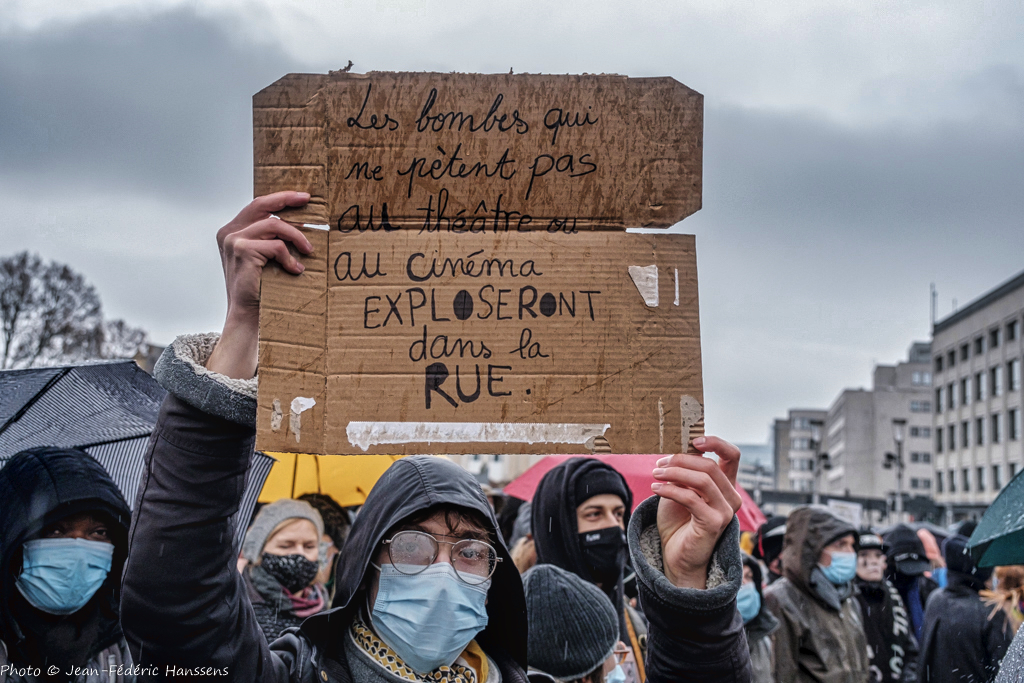 Les bombes qui
ne pètent pas
au théâtre ou
au cinéma
EXPLOSERONT
dans la
RUE.
Photo © Jean-Fédéric Hanssens